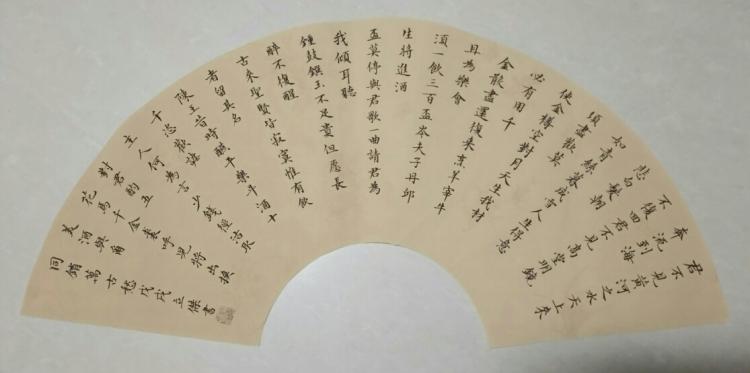 君不見黃河之水天上來
奔流到海
不復回君不見高堂明鏡
悲白髮朝
如青絲暮成雪人生得意
須盡歡莫
使金樽空對月天生我材
必有用千
金散盡還復來烹羊宰牛
且為樂會
須一飲三百盃岑夫子丹邱
生將進酒
盃莫停與君歌一曲請君為
我傾耳聽
鍾鼓饌玉不足貴但愿長
醉不復醒
古來聖賢皆寂寞惟有飲
者留其名
陳王昔時醼平樂斗酒十
千恣歡謔
主人何為言少錢徑沽來
對君酌五
花馬千金裘呼兒將出換
美酒與爾
同銷萬古愁戊戌立傑書